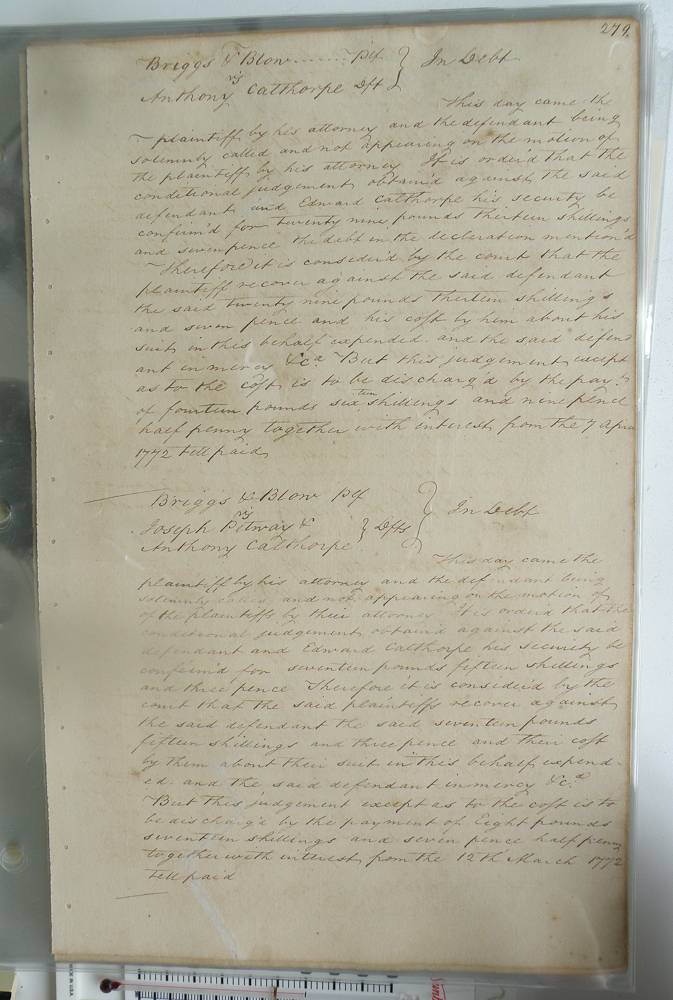 279.
Briggs & Blow ........ Plf } In Debt
vs
Anthony Calthorpe Dft
This day came the
plaintiff by his attorney and the defendant being
solemnly called and not appearing on the motion of
the plaintiff by his attorney It is orderd that the
conditional judgement obtain'd against the said
defendant and Edward Calthorpe his security be
confirm'd for twenty nine pounds therteen shillings
and seven pence the debt in the declaration mention'd
Therefore it is consider'd by the court that the
plaintiff recover against the said defendant
the said twenty nine pounds therteen shillings
and seven pence and his cost by him about his
suit in this behalf expended. and the said defend
ant in mercy &c.a But this judgement except
as to the cost is to be discharg'd by the pay.t
of fourteen pounds sixteen shillings and nine pence
half penny together with interest from the 7 April
1772 till paid
Briggs & Blow Plf } In Debt
vs
Joseph Petway & } Dfts
Anthony Calthorpe
This day came the
plaintiff by his attorney and the defendant being
solemnly called and not appearing on the motion of
of the plaintiffs by their attorney It is orderd that the
conditional judgement obtain'd against the said
defendant and Edward Calthorpe his security be
confirm'd for seventeen pounds fifteen shillings
and three pence Therefore it is consider'd by the
court that the said plaintiffs recover against
the said defendant the said seventeen pounds
fifteen shillings and three pence and their cost
by them about their suit in this behalf expend-
ed. and the said defendant in mercy &c.a
But this judgement except as to the cost is to
be discharg'd by the payment of Eight pounds
seventeen shillings and seven pence half penny
together with interest from the 12th March 1772
till paid